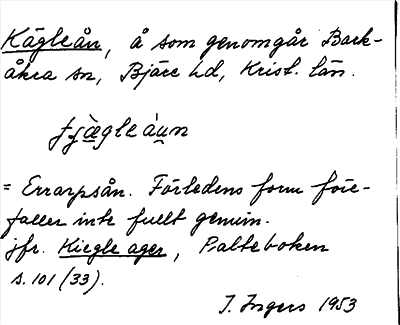 Kägleån, å som genomgår Bark-
åkra sn, Bjäre hd, Krist. län.
fjä̀gleáu̯n
= Errarpsån. Förledens form före-
faller inte fullt genuin.
jfr. Kiegle ager, Palteboken
s. 101 (33).
I. Ingers 1953